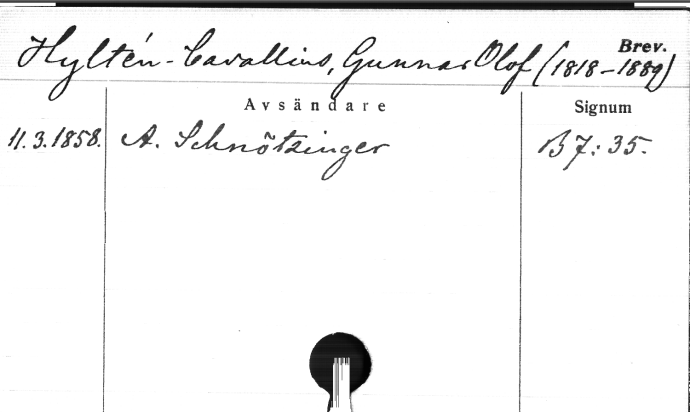 Brev.
Hyltén-Cavallius, Gunnar Olof (1818-1889)
Avsändare Signum
11.3.1858. A. Schnötzinger B 7: 35.